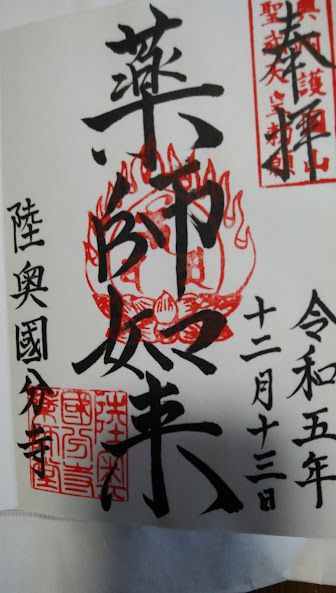 奉拝
令和五年
十二月十三日
薬師如来
陸奥國分寺